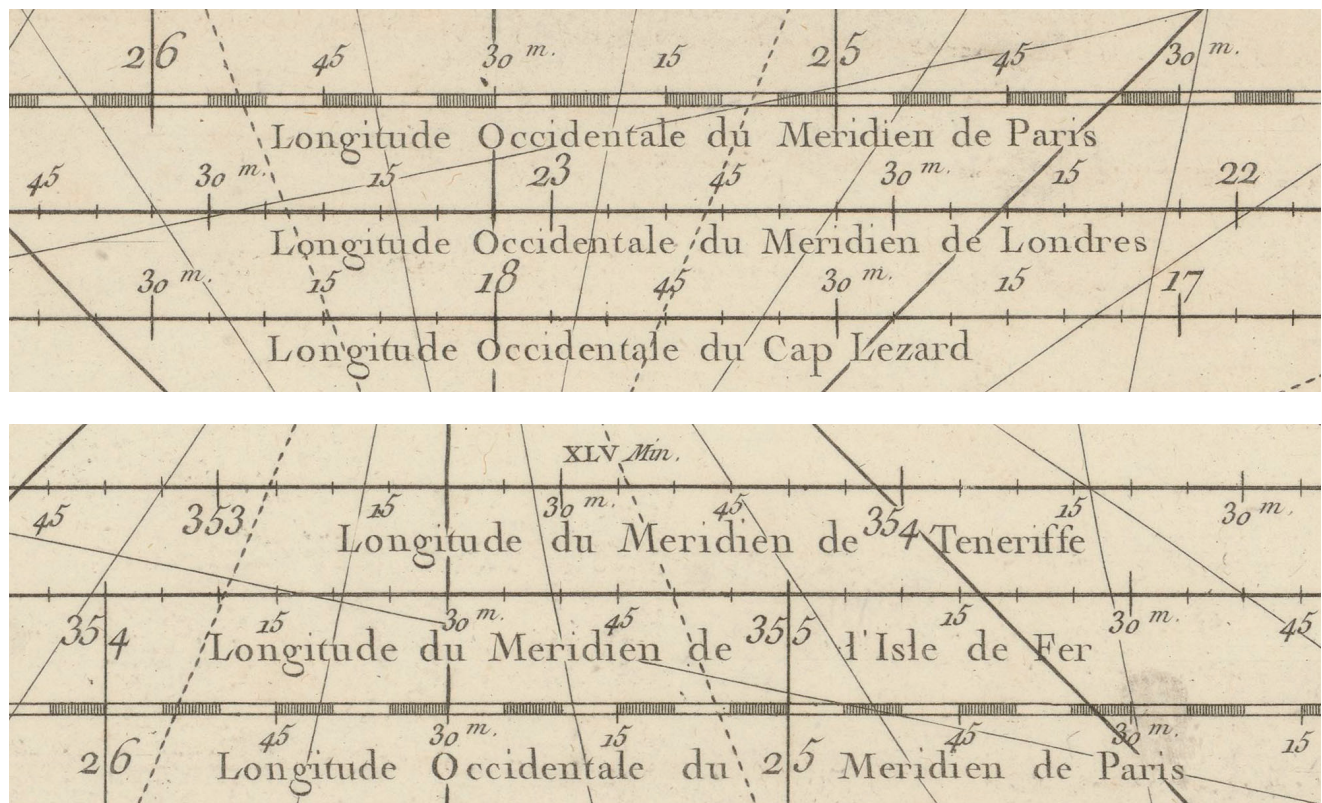 26 45 30 m. 15 25 45 30 m.
Longitude Occidentale du Meridien de Paris
45 30 m. 15 23 45 30 m. 15 22
Longitude Occidentale du Meridien de Londres
30 m. 15 18 45 30 m. 15 17
Longitude Occidentale du Cap Lezard
XLV Min.
45 353 15 30 m. 45 354 15 30 m.
Longitude du Meridien de Teneriffe
354 15 30 m. 45 355 15 30 m. 45
Longitude du Meridien de l'Isle de Fer
26 45 30 m. 15 25 45 30 m. 15
Longitude Occidentale du Meridien de Paris